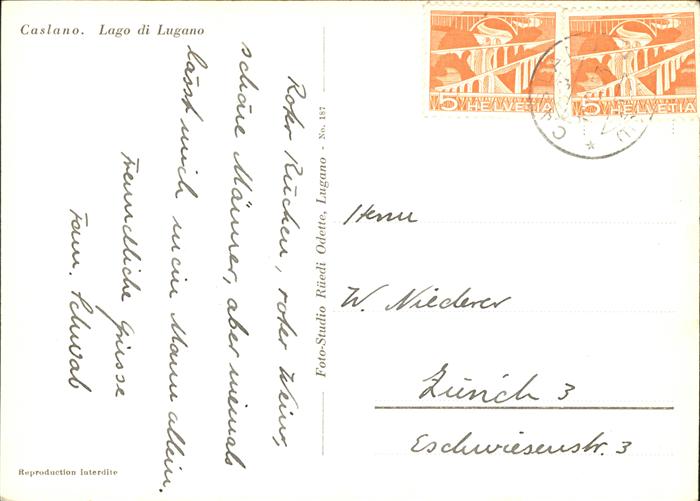 Caslano. Lago di Lugano
Roter Kuchen, roter Wein,
schöne Männer, aber niemals
lässt mich mein Mann allein.
Freundliche Grüsse
Fam. Schwab
Foto-Studio Rüedi Odette, Lugano - No. 187
5 HELVETIA
5 HELVETIA
Herrn
W. Niederer
Zürich 3
Eschwiesenstr. 3
Reproduction Interdite